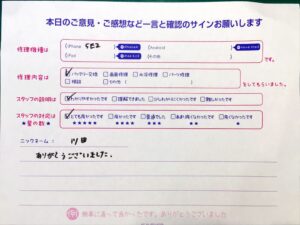 本日のご意見・ご感想など一言と確認のサインお願いします
修理機種は
iPhone SE2
Android
iPad
その他
修理内容は
バッテリー交換 画面修理 水没修理 パーツ修理
相談 その他
をしてもらいました。
スタッフの説明は
わかりやすかったです 理解できました 少しわかりにくかったです 難しかったです
スタッフの対応は
とても良かったです 良かったです 普通でした あまり良くなかったです 良くなかったです
★の数
★★★★★ ★★★★ ★★★ ★★ ★
ニックネーム：
ありがとうございました。
無事に直って良かったです。ありがとうございました